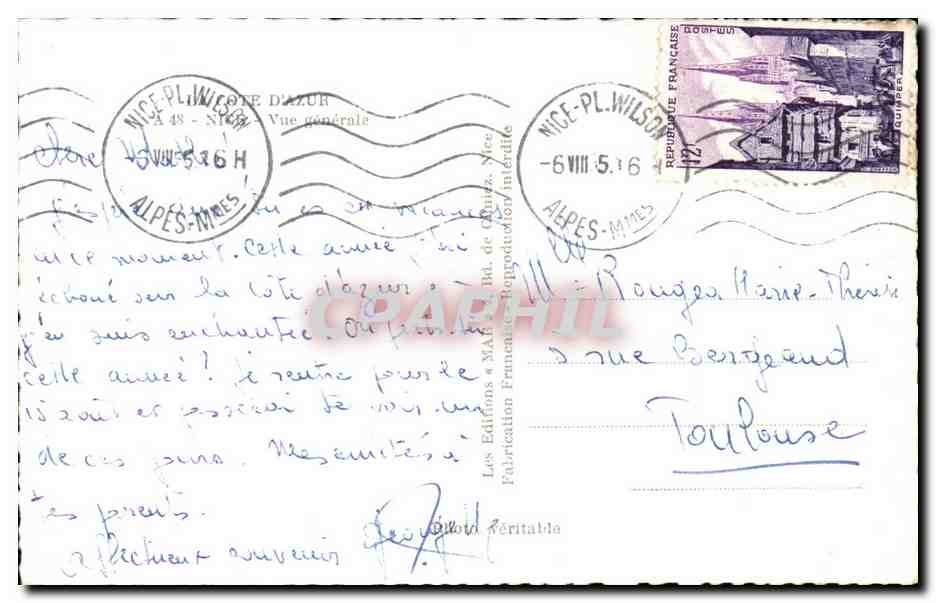 LA COTE D'AZUR
A 48 - NICE - Vue générale
NICE-PL. WILSON
-6 VIII 5. 16 H
ALPES-MMES
NICE-PL. WILSON
-6 VIII 5. 16
ALPES-MMES
REPUBLIQUE FRANÇAISE
POSTES
12F
QUIMPER
en vacances
en ce moment. Cette année j'ai
échoué sur la Côte d'azur
j'en suis enchantée. Où
cette année ? Je rentre pour le
15 août et te voir un
de ces jours. Mes amitiés à
tes parents.
affectueux souvenir
Melle Rouges Marie-Thérèse
rue Bergeaud
Toulouse
Les Editions « MAR » Bd. de Nice
Fabrication Française - Reproduction interdite
Photo véritable
CPAPHIL